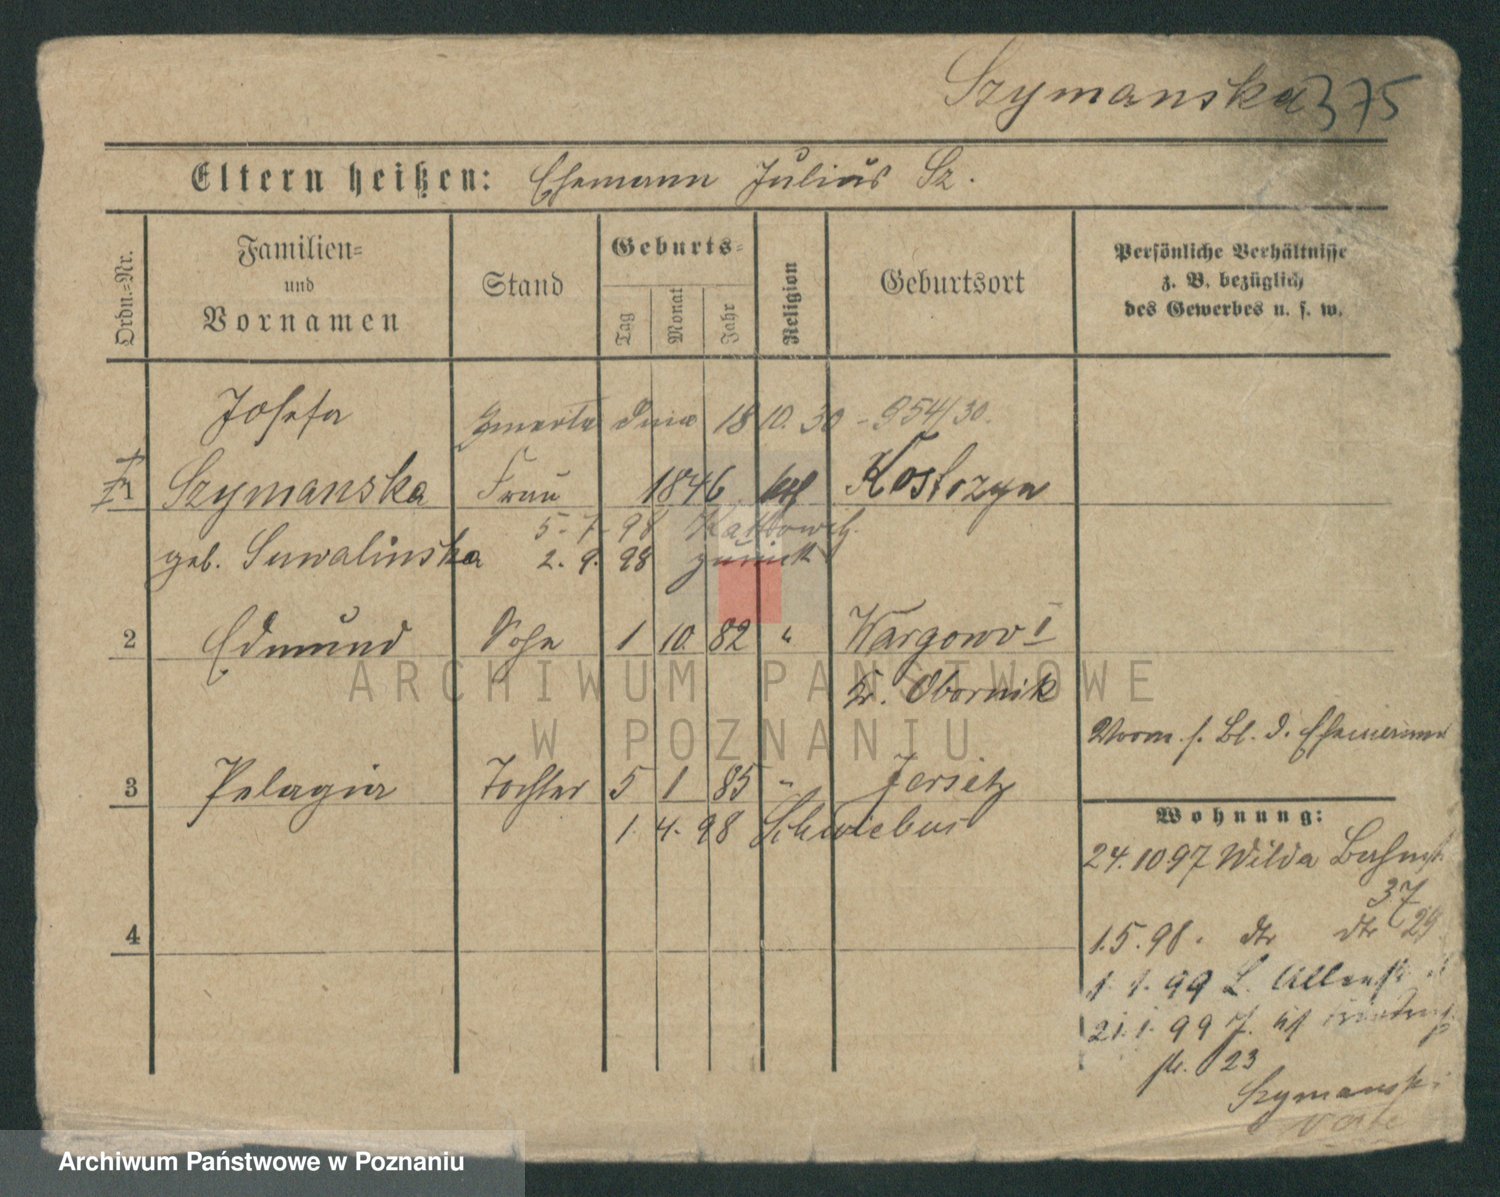 Szymanska 375
Eltern heißen: Ehemann Julius Sz.
Ordn.-Nr.
Familien-
und
Vornamen
Stand
Geburts-
Tag
Monat
Jahr
Religion
Geburtsort
Persönliche Verhältnisse
z. B. bezüglich
des Gewerbes u. s. w.
Josefa
zmarła dnia 18 10. 30 - 954/30.
1 Szymanska Frau 1846 kth Kostrzyn
5. 7. 98 Kattowitz
geb. Suwalinska 2. 9. 98 zurück
2 Edmund Sohn 1 10. 82 " Wargowo I
Kr. Obornik
ARCHIWUM PAŃSTWOWE
W POZNANIU
Vorm. s. Bl. d. Ehemannes
3 Pelagia Tochter 5 1 85 " Jersitz
1. 4. 98 Schwiebus
Wohnung:
24. 10 97 Wilda Bahnst.
37
1. 5. 98. dto dto 29
4
1. 1. 99 L.
21. 1. 99
23
Szymanski
Archiwum Państwowe w Poznaniu